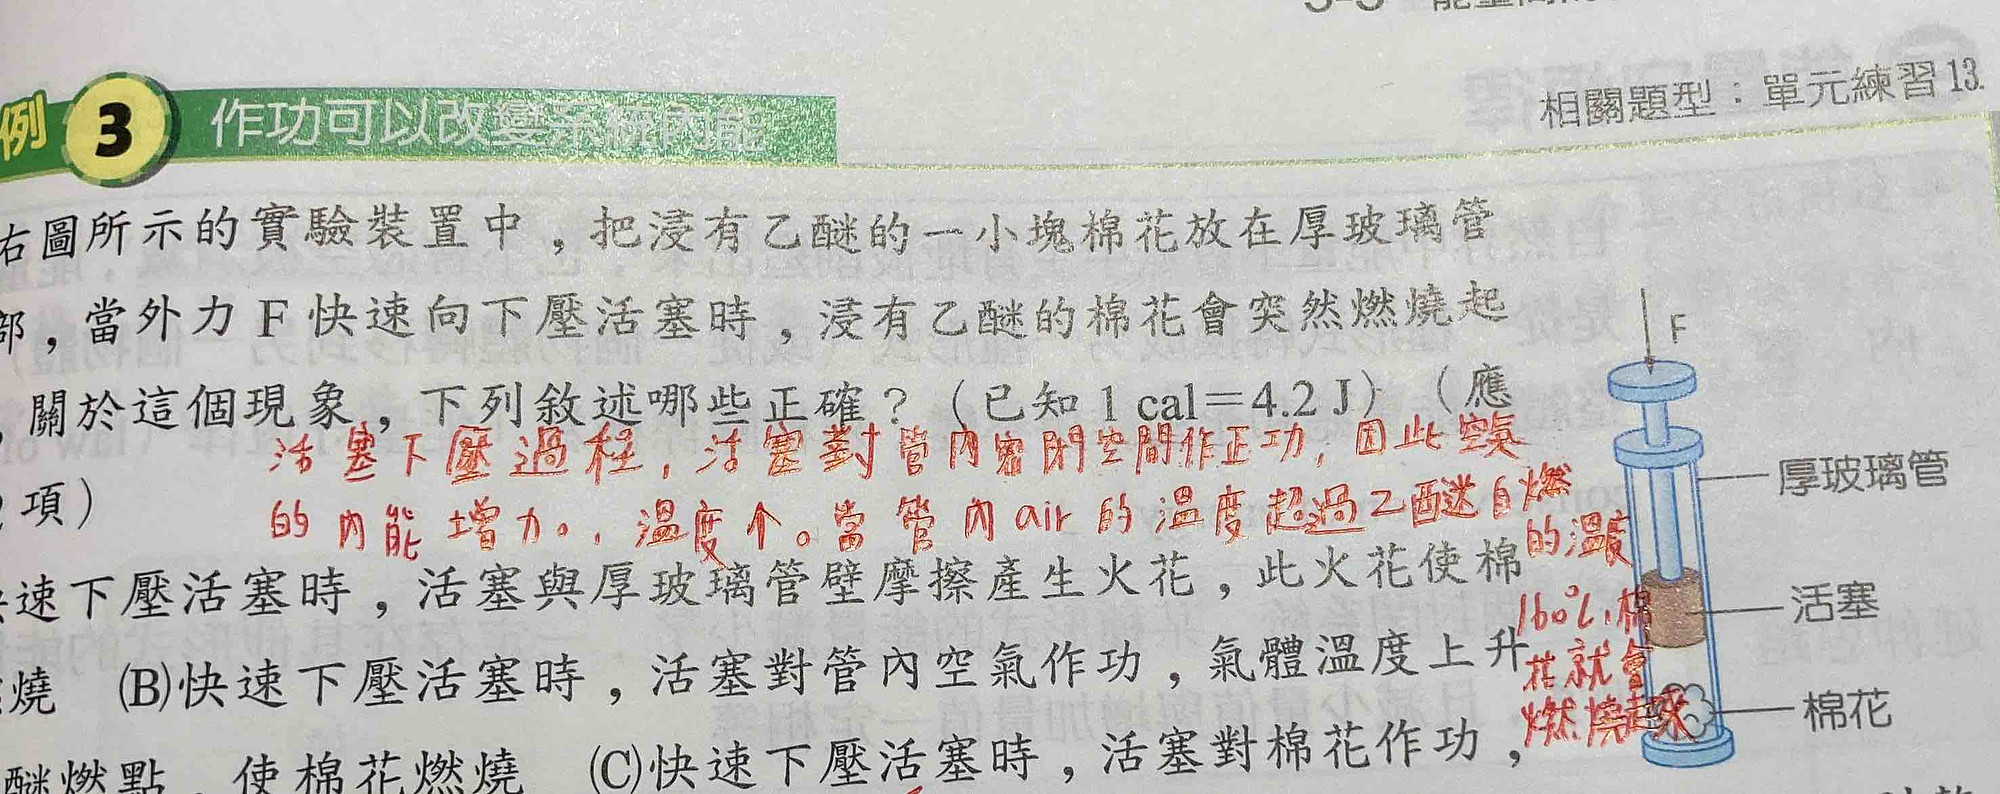 相關題型：單元練習 13.
例 3 作功可以改變系統內能
右圖所示的實驗裝置中，把浸有乙醚的一小塊棉花放在厚玻璃管
部，當外力 F 快速向下壓活塞時，浸有乙醚的棉花會突然燃燒起
，關於這個現象，下列敘述哪些正確？（已知 1 cal＝4.2 J）（應
項）
活塞下壓過程，活塞對管內密閉空間作正功，因此空氣
的內能增加。，溫度个。當管內air的溫度超過乙醚自燃
的溫度
160℃，棉
花就會
燃燒起來
速下壓活塞時，活塞與厚玻璃管壁摩擦產生火花，此火花使棉
燒 (B)快速下壓活塞時，活塞對管內空氣作功，氣體溫度上升
醚燃點，使棉花燃燒 (C)快速下壓活塞時，活塞對棉花作功，
F
厚玻璃管
活塞
棉花